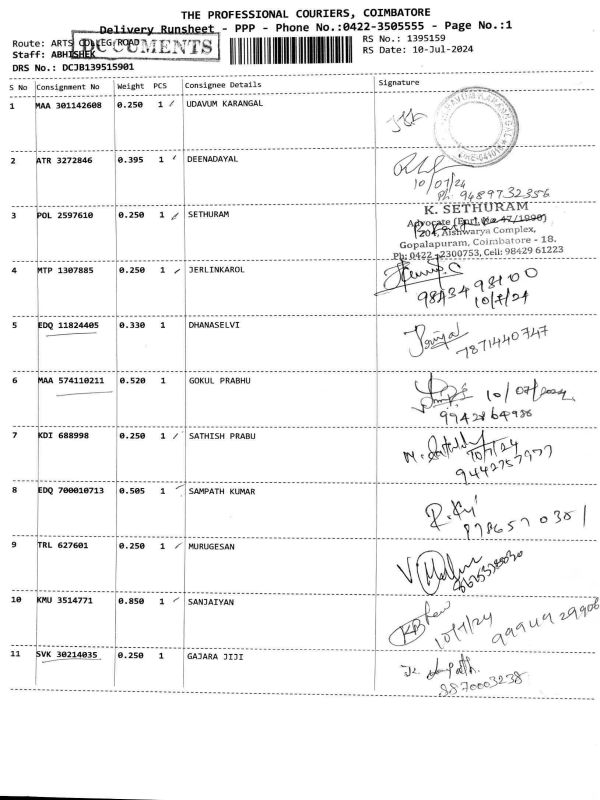 THE PROFESSIONAL COURIERS, COIMBATORE
Delivery Runsheet - PPP - Phone No.:0422-3505555 - Page No.:1
Route: ARTS COLLEG ROAD
DOCUMENTS
RS No.: 1395159
Staff: ABHISHEK
RS Date: 10-Jul-2024
DRS No.: DCJB139515901
S No Consignment No Weight PCS Consignee Details Signature
1 MAA 301142608 0.250 1 UDAVUM KARANGAL
2 ATR 3272846 0.395 1 DEENADAYAL
10/07/24
Ph 9489732356
3 POL 2597610 0.250 1 SETHURAM
K. SETHURAM
Advocate (Enrl. No 47/1990)
204, Aishwarya Complex,
Gopalapuram, Coimbatore - 18.
Ph: 0422 -2300753, Cell: 98429 61223
4 MTP 1307885 0.250 1 JERLINKAROL
9843498100
10/7/24
5 EDQ 11824405 0.330 1 DHANASELVI
7871440747
6 MAA 574110211 0.520 1 GOKUL PRABHU
10/07/2024
9942864986
7 KDI 688998 0.250 1 SATHISH PRABU
10/7/24
9442757977
8 EDQ 700010713 0.505 1 SAMPATH KUMAR
9 TRL 627601 0.250 1 MURUGESAN
10 KMU 3514771 0.850 1 SANJAIYAN
10/7/24
9994929908
11 SVK 30214035 0.250 1 GAJARA JIJI
8870003238